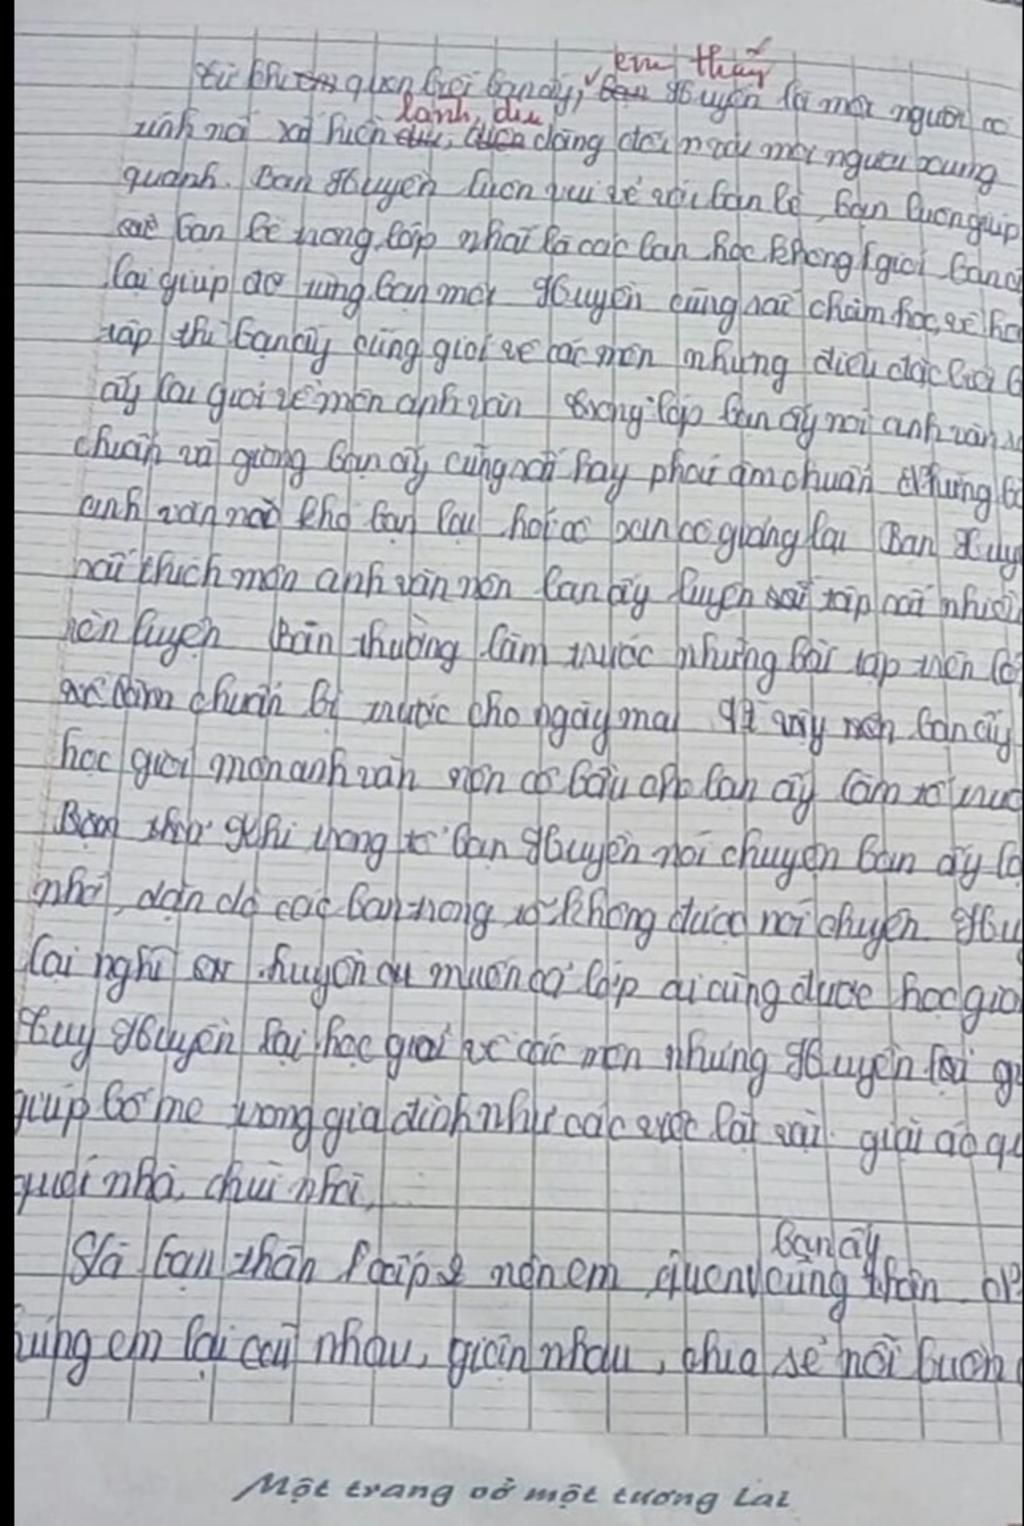 em thấy
Từ khi quen biết bạn ấy, Huyền là một người có
lành, dịu
tính nết rất hiền, dàng đối với mọi người xung
quanh. Bạn Huyền luôn vui vẻ với bạn bè, bạn luôn giúp
bạn bè trong lớp nhất là các bạn học không giỏi bạn
lại giúp đỡ từng bạn một Huyền cũng rất chăm học, về học
tập thì bạn ấy cũng giỏi về các môn nhưng điều đặc biệt
ấy lại giỏi về môn anh văn trong lớp bạn ấy nói anh văn
chuẩn và giọng bạn ấy cũng rất hay phát âm chuẩn Những
anh văn nào khó bạn lại cô giảng lại Bạn Huy
rất thích môn anh văn nên bạn ấy luyện tập rất nhiều
rèn luyện Bạn thường làm trước những bài tập trên
chuẩn bị trước cho ngày mai Vì vậy nên bạn ấy
học giỏi môn anh văn nên cô bầu cho bạn ấy làm tổ trưở
Khi trong tổ bạn Huyền nói chuyện bạn ấy
nhở, dặn dò các bạn trong tổ không được nói chuyện Hu
lại nghĩ muốn cả lớp ai cũng được học giỏ
Tuy Huyền lại học giỏi về các môn nhưng Huyền lại
giúp bố mẹ trong gia đình như các việc lặt vặt. giặt áo
quét nhà, chùi nhà,
bạn ấy
Là bạn thân nên em cũng thân
húng em lại nhau, giận nhau, chia sẻ nỗi buồn
Một trang vở một tương lai